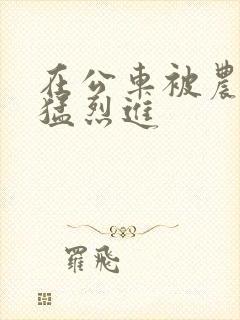 在公車被農
猛烈進
羅飛